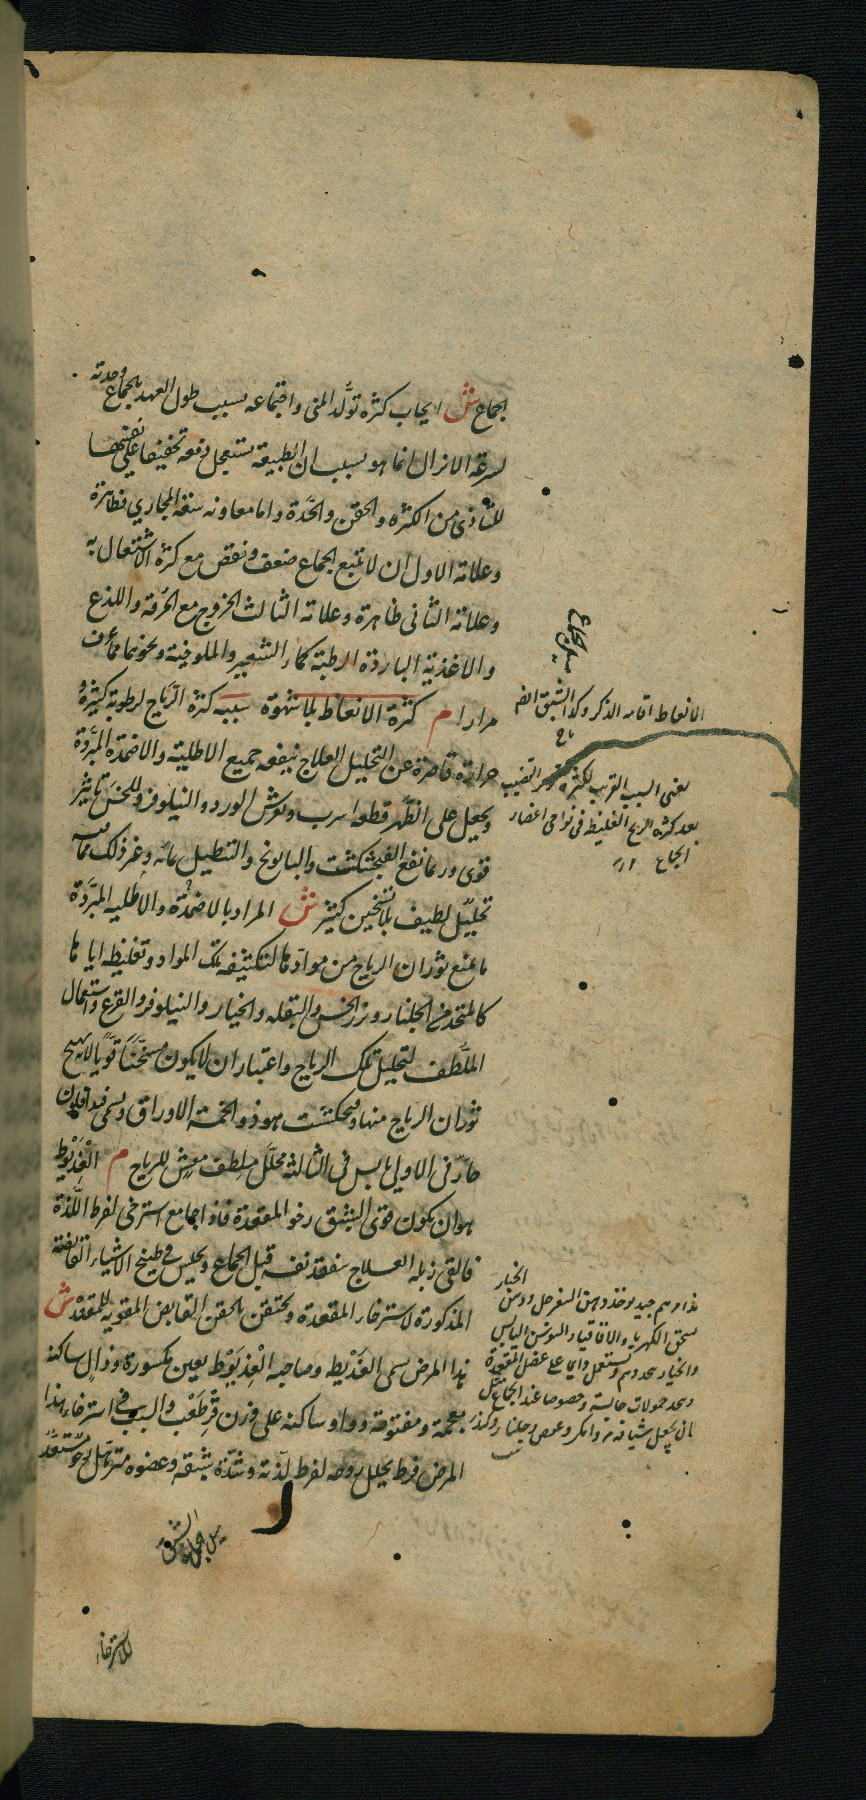 الجماع ش ايجاب كثرة تولّد المنى واجتماعه بسبب طول العهد بالجماع وحدته
لسرعة الانزال انما هو بسبب ان الطبيعة تستعجل دفعه تخفيفا على نفسها
للتأذى من الكثرة و الحقن والحدّة واما معاونة سعة المجارى فظاهرة
وعلامة الاول ان لا يتبع الجماع ضعف ونقص مع كثرة الاشتعال به
وعلامة الثانى ظاهرة وعلامة الثالث الخروج مع الحرقة واللذع
والاغذية الباردة الرطبة كماء الشعير والملوخية ونحوهما مما عرف
مرارا م كثرة الانعاظ بلا شهوة سببه كثرة الرّياح لرطوبة كثيرة و
حرارة قاصرة عن التحليل العلاج ينفعه جميع الاطلية والاضمدة المبرّدة
ويجعل على الظّهر قطعة اسرب وفرش الورد والنيلوفر وللخسّ تاثير
قوى وربما نفع الفنجنكشت والبابونج والتنطيل بمائه وغير ذلك مما فيه
تحليل لطيف بلا تسخين كثير ش المراد بالاضمدة والاطلية المبرّدة
ما يمنع ثوران الرياح من موادّها لتكثيفه تلك المواد وتغليظه اياها
كالمتخذ من الجلنار وبزر الخس والبقلة والخيار والنيلوفر والقرع واستعمال
الملطّف لتحليل تلك الرياح واعتبار ان لا يكون مسخّنًا قويًا لا يهيج
ثوران الرياح منها وفنجنكشت هو ذو الخمسة الاوراق ويسمى
حارّ فى الاولى يابس فى الثالثة محلّل ملطف مفش للرياح م العذيوط
هو ان يكون قوى الشبق رخو المقعدة فاذا جامع استرخى لفرط اللّذة
فالقى زبله العلاج يتفقد نفسه قبل الجماع ويجلس فى طبيخ الاشياء القابضة
المذكورة لاسترخاء المقعدة ويحتقن بالحقن القابض المقوية للمقعدة ش
هذا المرض يسمى العذيط وصاحبه العذيوط بعين مكسورة وذال ساكنة
معجمة ومفتوحة وواو ساكنة على وزن قرطعب والسبب فى استرخاء هذا
المرض فرط تحلل روحه لفرط لذّته وشدّة شبقه وعضوه مترهّل رخو مستعدّ
للاسترخاء
الانعاظ اقامة الذكر وكذا الشبق ايضا
يعنى السبب القريب لكثرة القضيب
بعد كثرة الريح الغليظة فى نواحى اعضاء
الجماع
الخيار
هذا مرهم جيد يوخذ دهن السفرجل ودهن
سحق الكهربا والاقاقيا والسوسن اليابس
والخيار مرهم ويستعمل دائما على عضل المقعدة
حمولات حابسة وخصوصا عند الجماع
بان يجعل شيافة من وجلنار وكندر